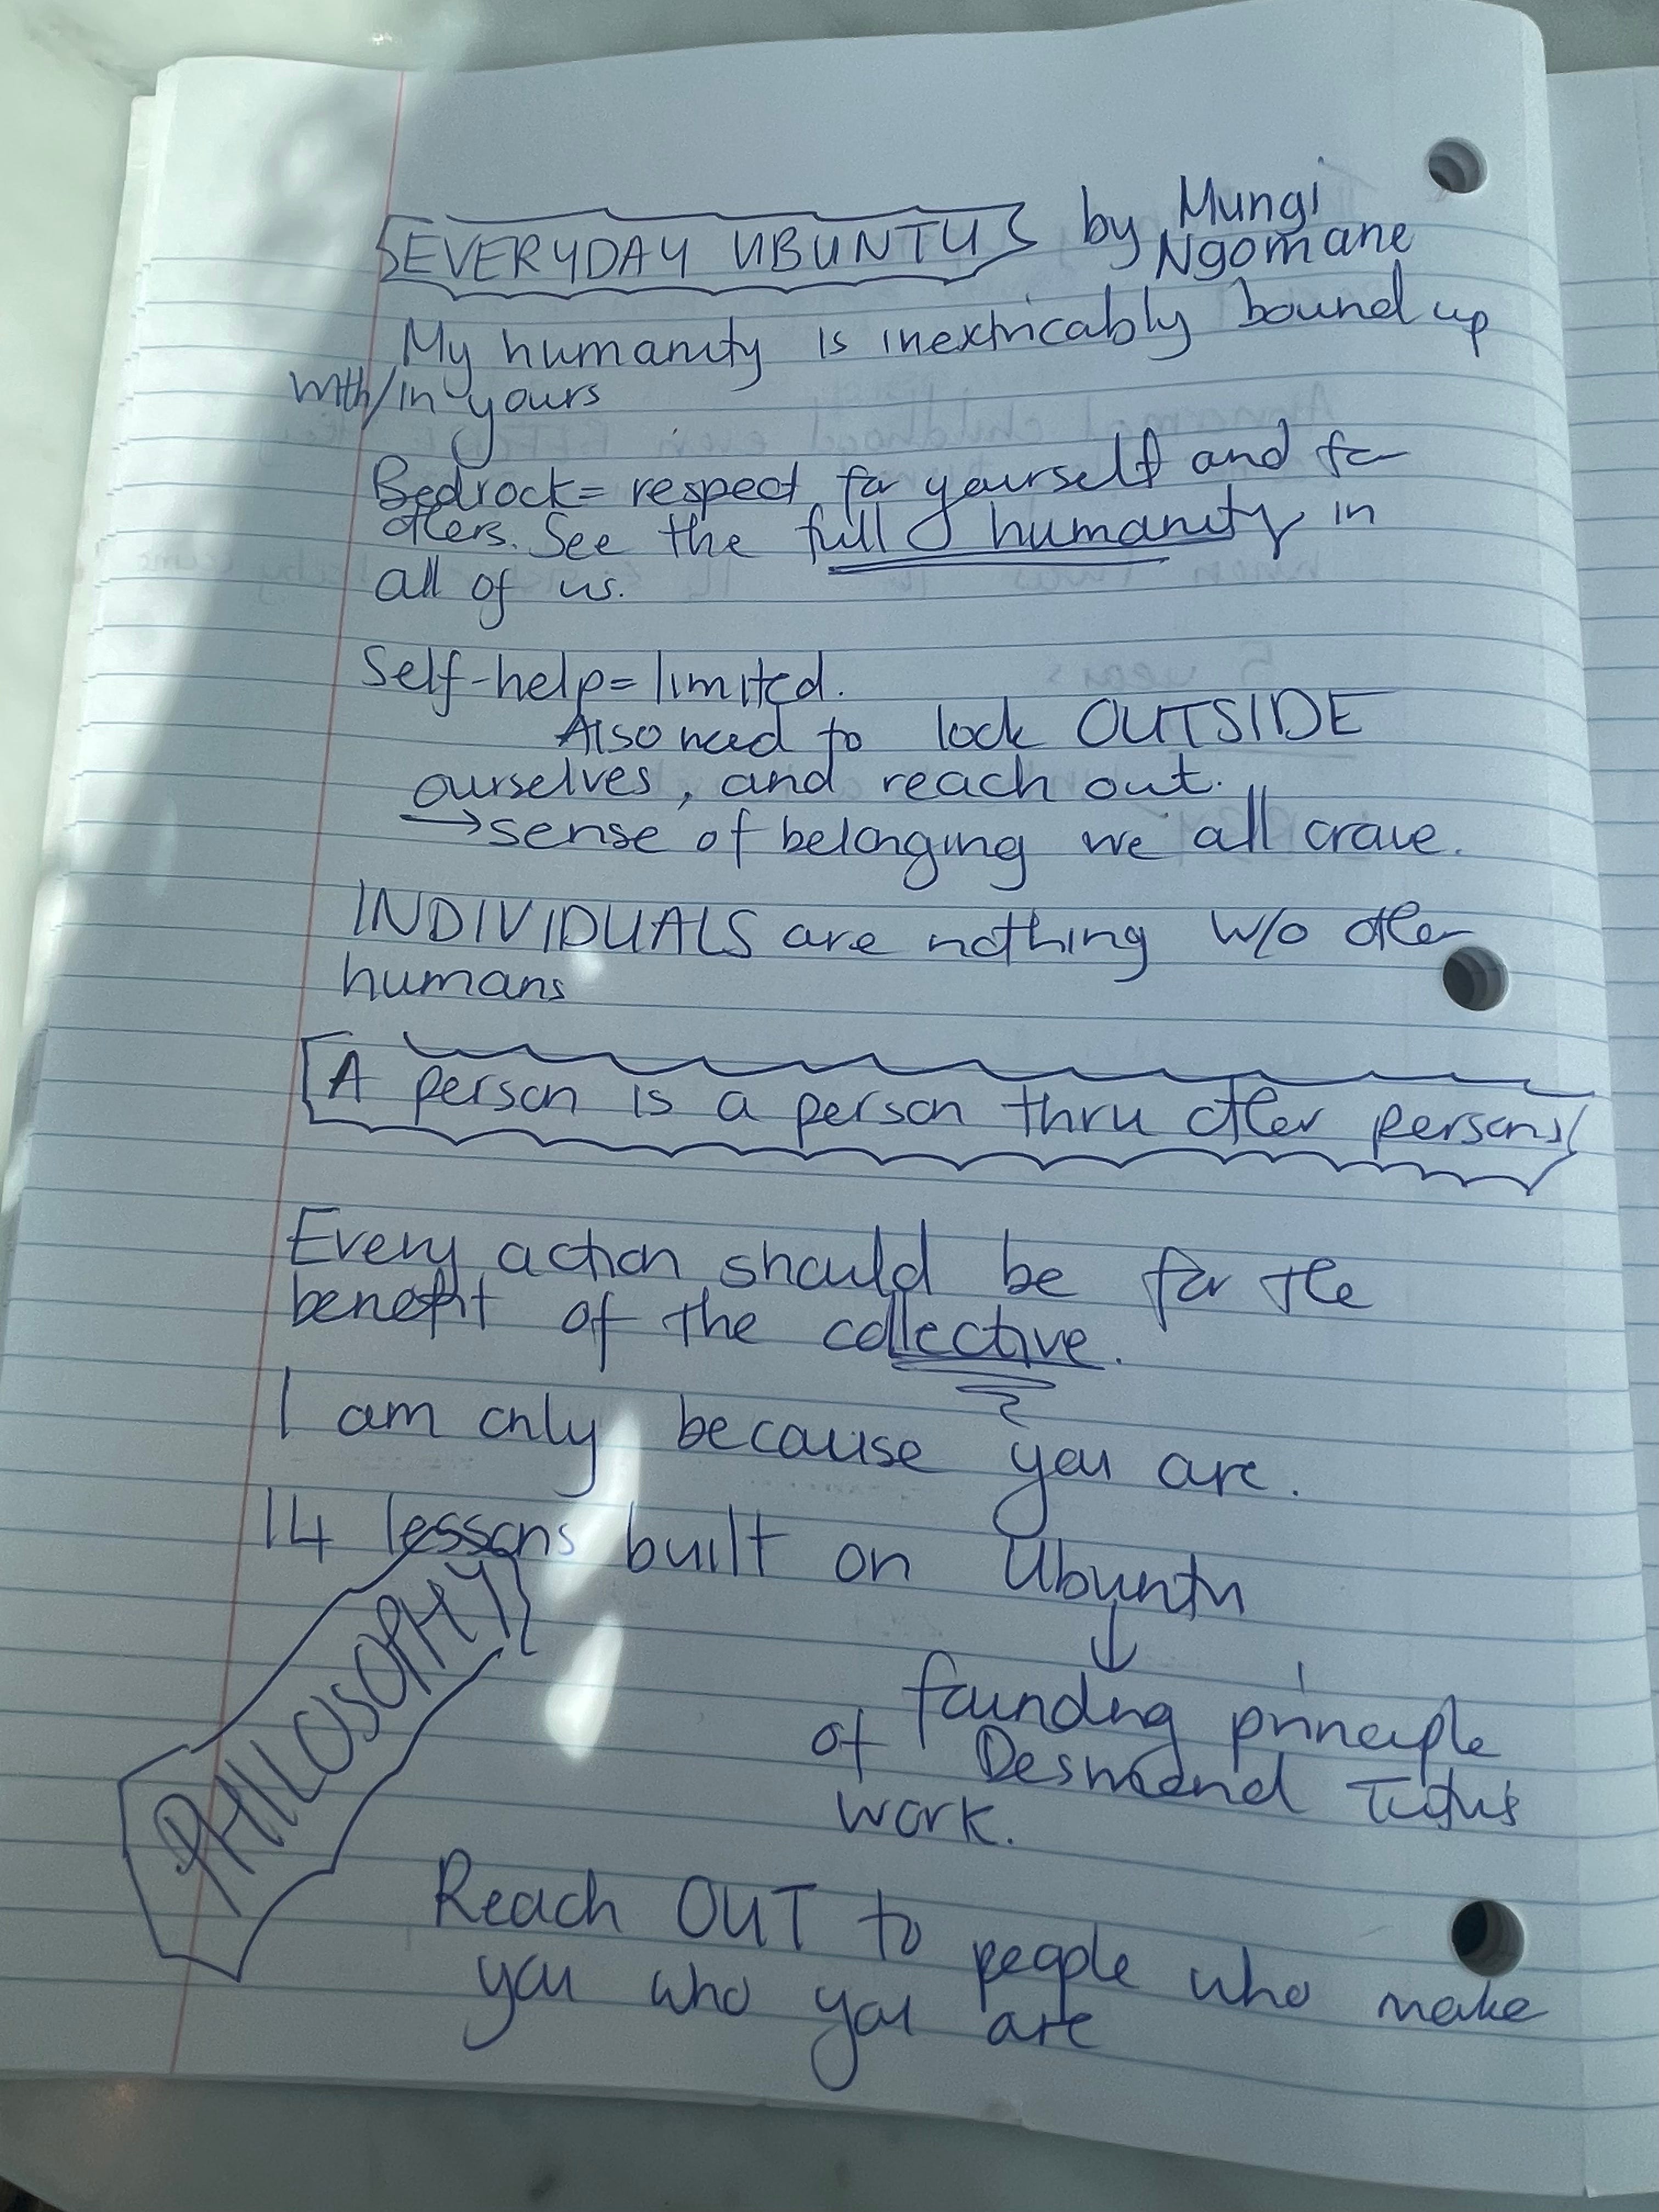 EVERYDAY UBUNTU by Mungi
Ngomane
My humanity is inextricably bound up
with/in yours
Bedrock = respect for yourself and for
others. See the full humanity in
all of us.
Self-help = limited.
Also need to look OUTSIDE
ourselves, and reach out.
→ sense of belonging we all crave.
INDIVIDUALS are nothing w/o other
humans
A person is a person thru other persons
Every action should be for the
benefit of the collective.
I am only because you are.
14 lessons built on Ubuntu
PHILOSOPHY
↓
founding principle
of Desmond Tutu's
work.
Reach OUT to people who make
you who you are